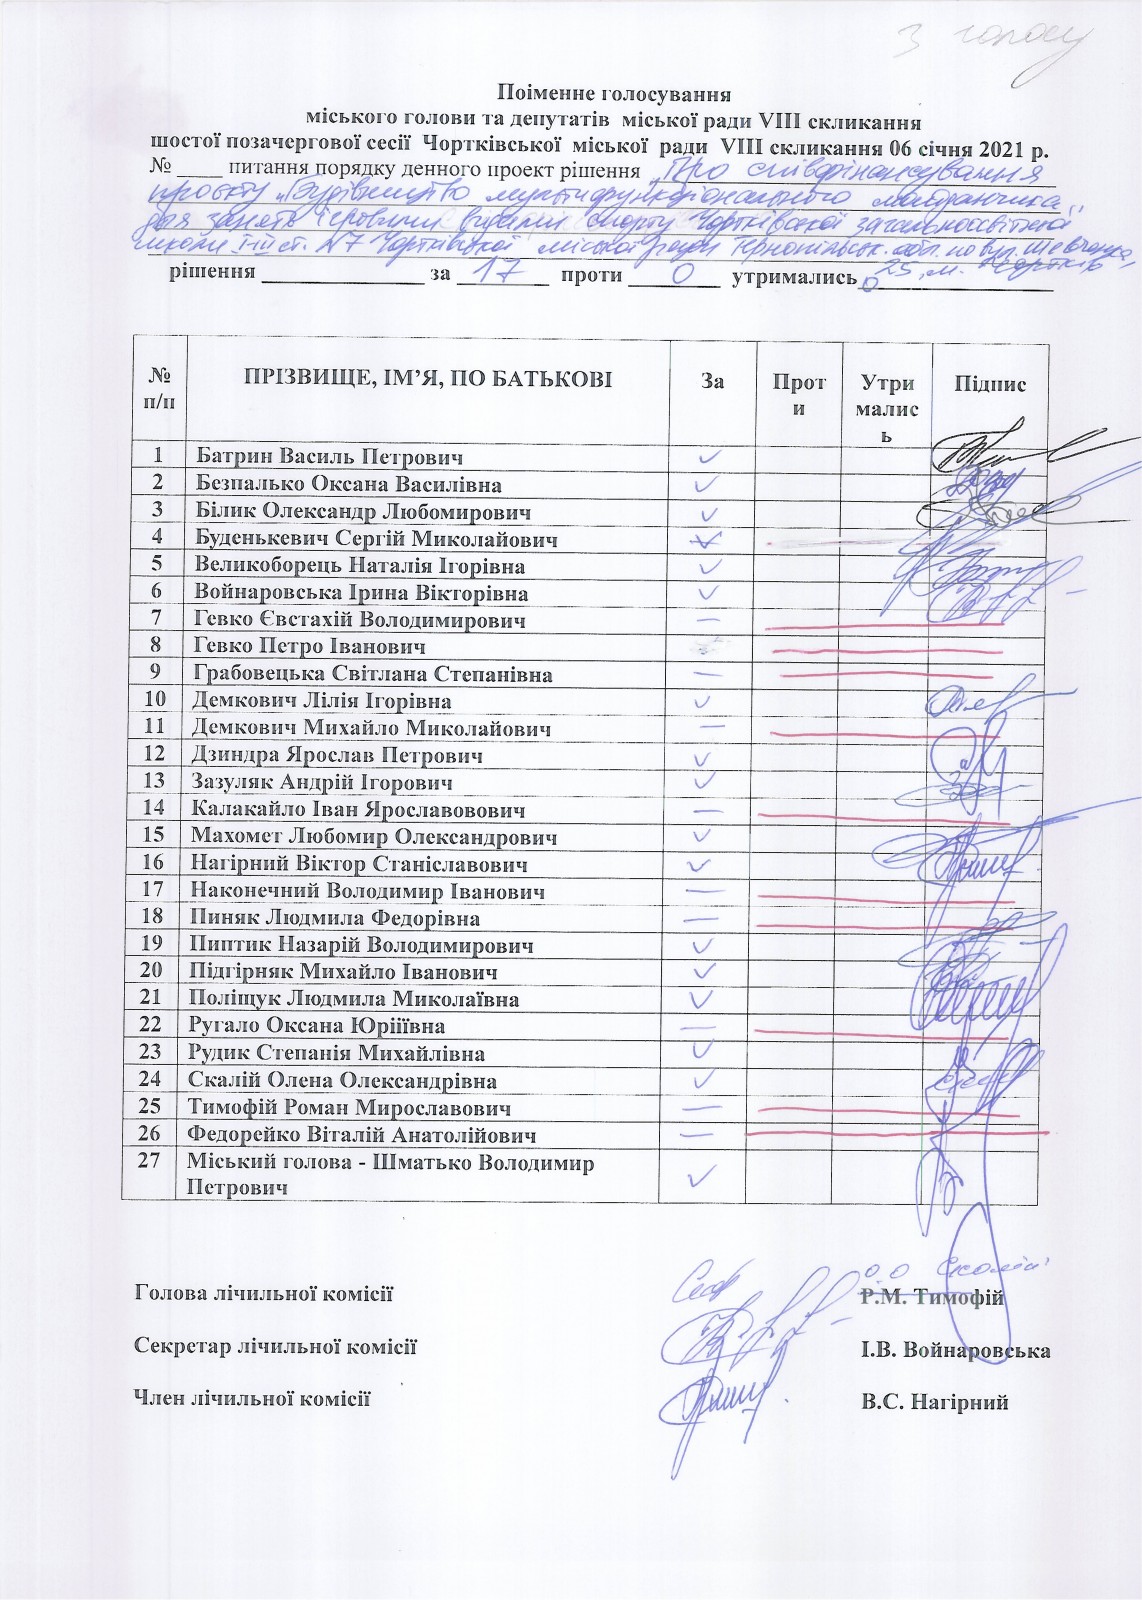 З голосу
Поіменне голосування
міського голови та депутатів міської ради VIII скликання
шостої позачергової сесії Чортківської міської ради VIII скликання 06 січня 2021 р.
№ ____ питання порядку денного проект рішення „Про співфінансування
проєкту „Будівництво мультифункціонального майданчика
для занять ігровими видами спорту Чортківської загальноосвітньої
школи І-ІІІ ст. №7 Чортківської міської ради Тернопільськ. обл. по вул. Шевченка,
25, м. Чортків
рішення ______________ за 17 проти 0 утримались 0
№ п/п ПРІЗВИЩЕ, ІМ’Я, ПО БАТЬКОВІ За Проти Утримались Підпис
1 Батрин Василь Петрович ✓
2 Безпалько Оксана Василівна ✓
3 Білик Олександр Любомирович ✓
4 Буденькевич Сергій Миколайович ✓
5 Великоборець Наталія Ігорівна ✓
6 Войнаровська Ірина Вікторівна ✓
7 Гевко Євстахій Володимирович —
8 Гевко Петро Іванович
9 Грабовецька Світлана Степанівна —
10 Демкович Лілія Ігорівна ✓
11 Демкович Михайло Миколайович —
12 Дзиндра Ярослав Петрович ✓
13 Зазуляк Андрій Ігорович ✓
14 Калакайло Іван Ярославовович —
15 Махомет Любомир Олександрович ✓
16 Нагірний Віктор Станіславович ✓
17 Наконечний Володимир Іванович —
18 Пиняк Людмила Федорівна —
19 Пиптик Назарій Володимирович ✓
20 Підгірняк Михайло Іванович ✓
21 Поліщук Людмила Миколаївна ✓
22 Ругало Оксана Юріїївна —
23 Рудик Степанія Михайлівна ✓
24 Скалій Олена Олександрівна ✓
25 Тимофій Роман Мирославович —
26 Федорейко Віталій Анатолійович —
27 Міський голова - Шматько Володимир
Петрович ✓
О.О Скалій
Голова лічильної комісії Р.М. Тимофій
Секретар лічильної комісії І.В. Войнаровська
Член лічильної комісії В.С. Нагірний